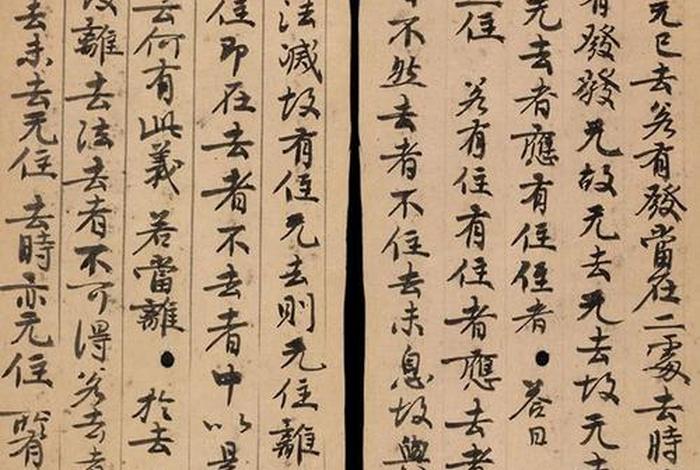 无已去若有發當在二處去時
有發發无故无去无去故无
无去者應有住住者答曰
住 若有住有住者應去者
不然去者不住去未息故與
法滅故有住无去則无住離
住即在去者不去者中以是
云何有此義 若當離 於去
離去法去者不可得若去者
去未去无住 去時亦无住